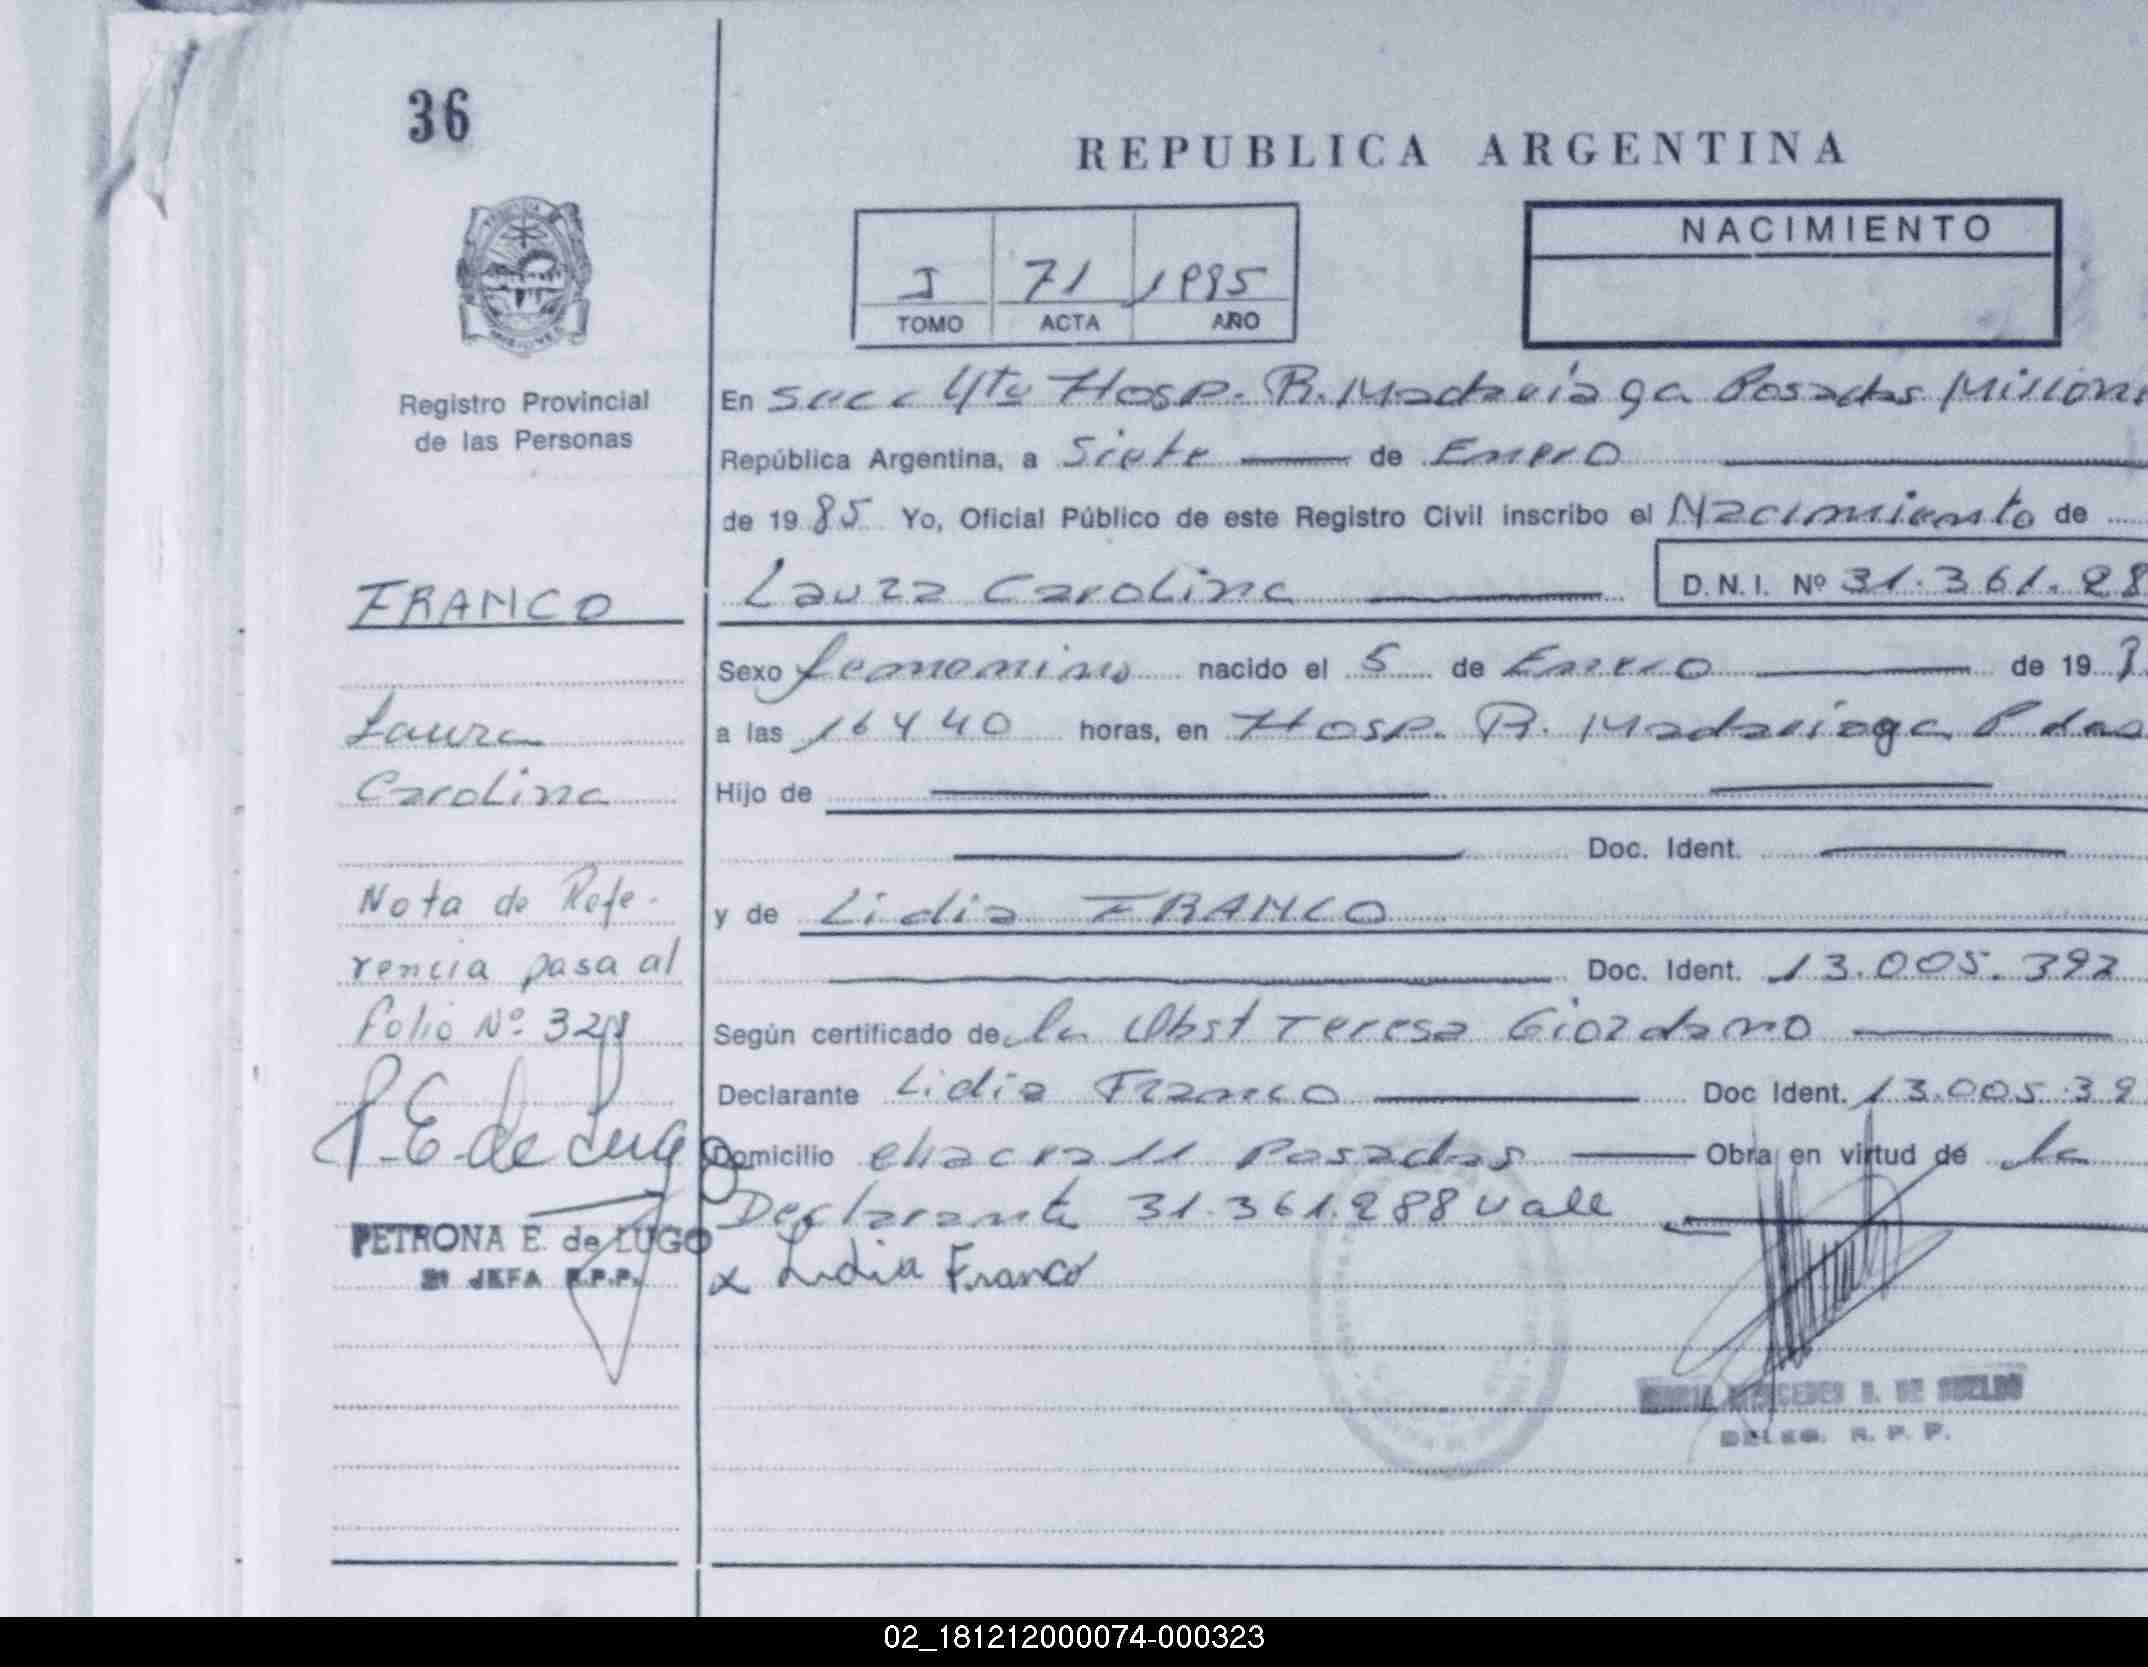 36
REPUBLICA ARGENTINA
NACIMIENTO
I 71 1985
TOMO ACTA AÑO
Registro Provincial
de las Personas
En succ 4ta Hosp. R. Madariaga Posadas Mision
República Argentina, a Siete de Enero
de 19 85 Yo, Oficial Público de este Registro Civil inscribo el Nacimiento de
FRANCO
Laura Carolina D.N.I. Nº 31.361.28
Sexo femenino nacido el 5 de Enero de 19
Laura
a las 16 y 40 horas, en Hosp. R. Madariaga Pdas
Carolina
Hijo de
Doc. Ident.
Nota de Refe-
y de Lidia FRANCO
rencia pasa al
Doc. Ident. 13.005.392
folio Nº 328
Según certificado de la Obst Teresa Giordano
Declarante Lidia Franco Doc Ident. 13.005.39
P. E. de Lugo
Domicilio chacra 11 Posadas Obra en virtud de la
Declarante 31.361.288 vale
PETRONA E. de LUGO
JEFA R.P.P.
x Lidia Franco
MARIA MERCEDES B. DE SUELDO
DELEG. R. P. P.
02_181212000074-000323